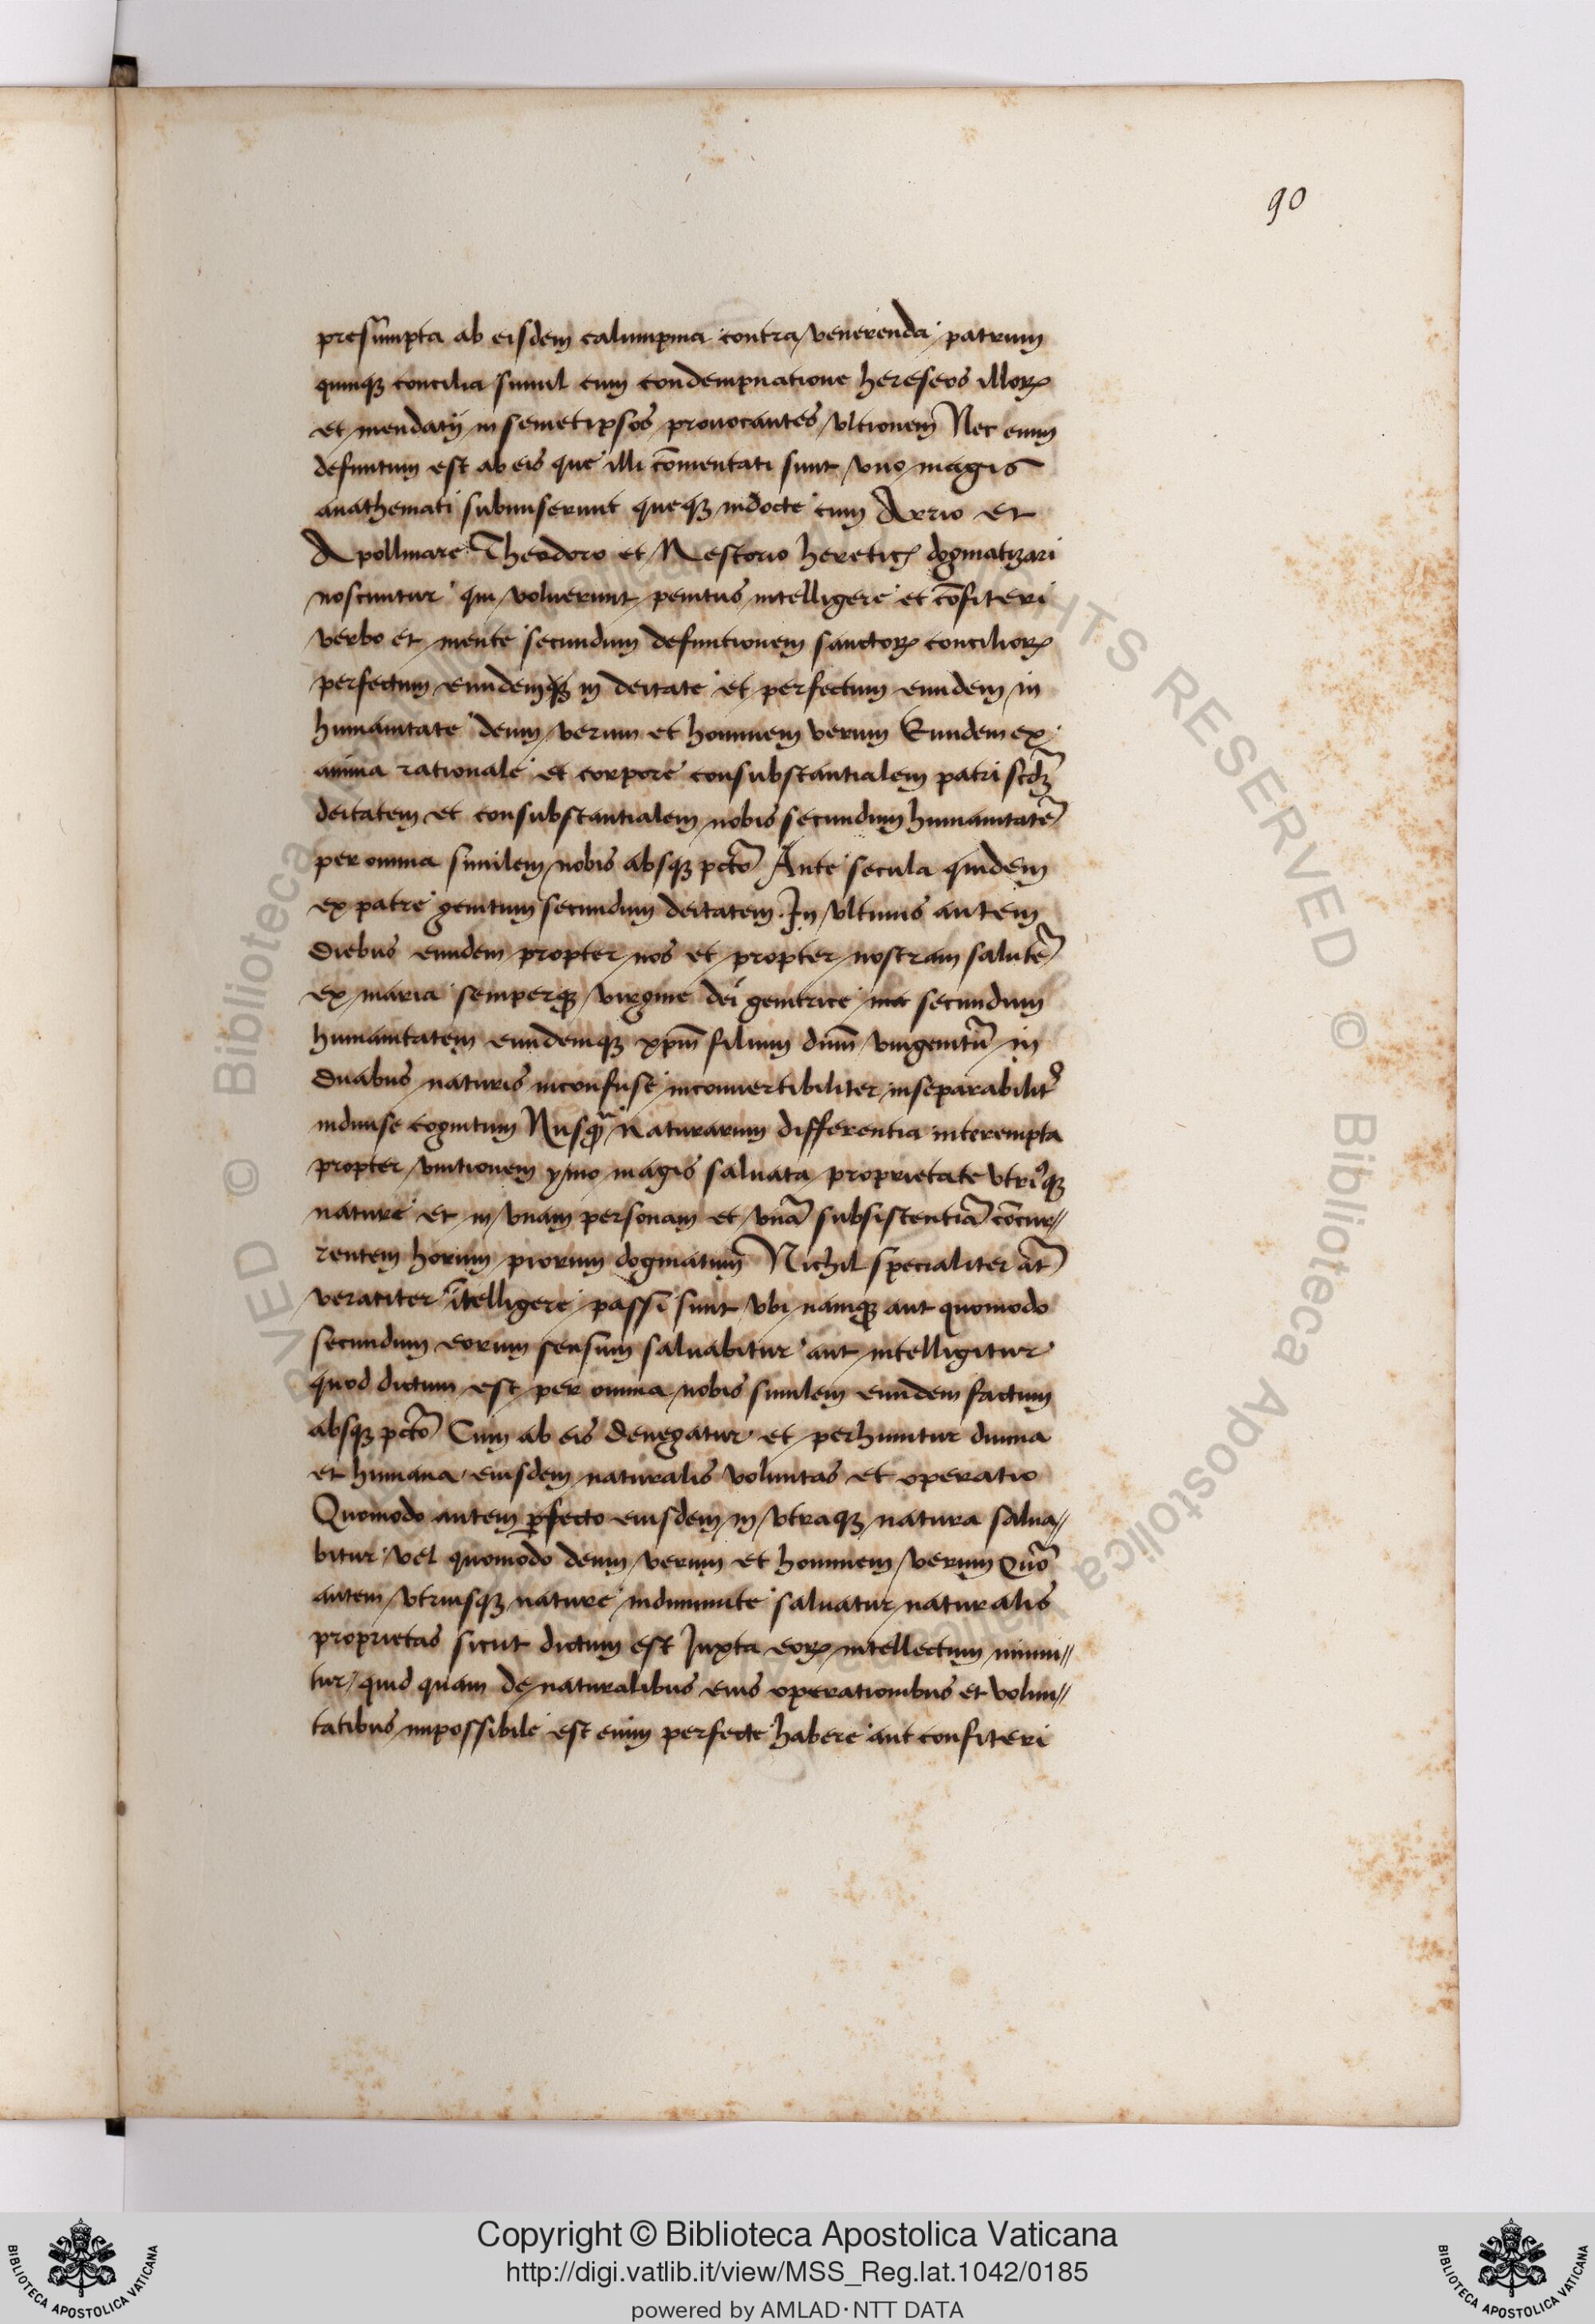 90
presũmpta ab eisdem calumpnia contra venerenda patrum
quinqꝫ concilia simul cum condempnatione hereseos illoꝝ
et mendatij in semetipsos prouocantes vltionem Nec enim
definitum est ab eis que illi cōmentati sunt vno magis
anathemati subiunserunt queqꝫ indocte cum Arrio et
Apollinare Theodoro et Nestorio heretic dogmatizari
noscuntur qui voluerunt penitus intelligere et cōfiteri
verbo et mente secundum definitionem sanctoꝝ concilioꝝ
perfectum eundemqꝫ in deitate et perfectum eundem in
humanitate deum verum et hominem verum Eundem ex
anima rationale et corpore consubstantialem patri scdꝫ
deitatem et consubstantialem nobis secundum humanitatē
per omnia similem nobis absqꝫ pctō Ante secula quidem
ex patre genitum secundum deitatem. In vltimis autem
diebus eundem propter nos et propter nostram salutē
ex maria semperqꝫ virgine dei genitrice secundum
humanitatem eundemqꝫ xpm̄ filium dnm̄ vnigenitū in
duabus naturis inconfuse inconuertibiliter inseparabilit
indiuise cognitum Nusqꝫ naturarum differentia interempta
propter vnitionem ymo magis saluata proprietate vtriꝰqꝫ
nature et in vnam personam et vnā subsistentiā cōcur//
rentem horum piorum dogmatum Nichil specialiter at̄
veraciter ītelligere passi sunt vbi namqꝫ aut quomodo
secundum eorum sensum saluabitur aut intelligitur
quod dictum est per omnia nobis similem eundem factum
absqꝫ pctō Cum ab eis denegatur et perhimitur diuina
et humana eiusdem naturalis voluntas et operatio
Quomodo autem ꝑfecto eiusdem in vtraqꝫ natura salua//
bitur vel quomodo deum verum et hominem verum Quō
autem vtriusqꝫ nature indiminute saluatur naturalis
proprietas sicut dictum est Iuxta eoꝝ intellectum minui//
tur quid quam de naturalibus eius operationibus et volun//
tatibus impossibile est enim perfecte habere aut confiteri
© Biblioteca Apostolica Vaticana
RIGHTS RESERVED
Copyright © Biblioteca Apostolica Vaticana
http://digi.vatlib.it/view/MSS_Reg.lat.1042/0185
powered by AMLAD·NTT DATA
BIBLIOTECA APOSTOLICA VATICANA
BIBLIOTECA APOSTOLICA VATICANA